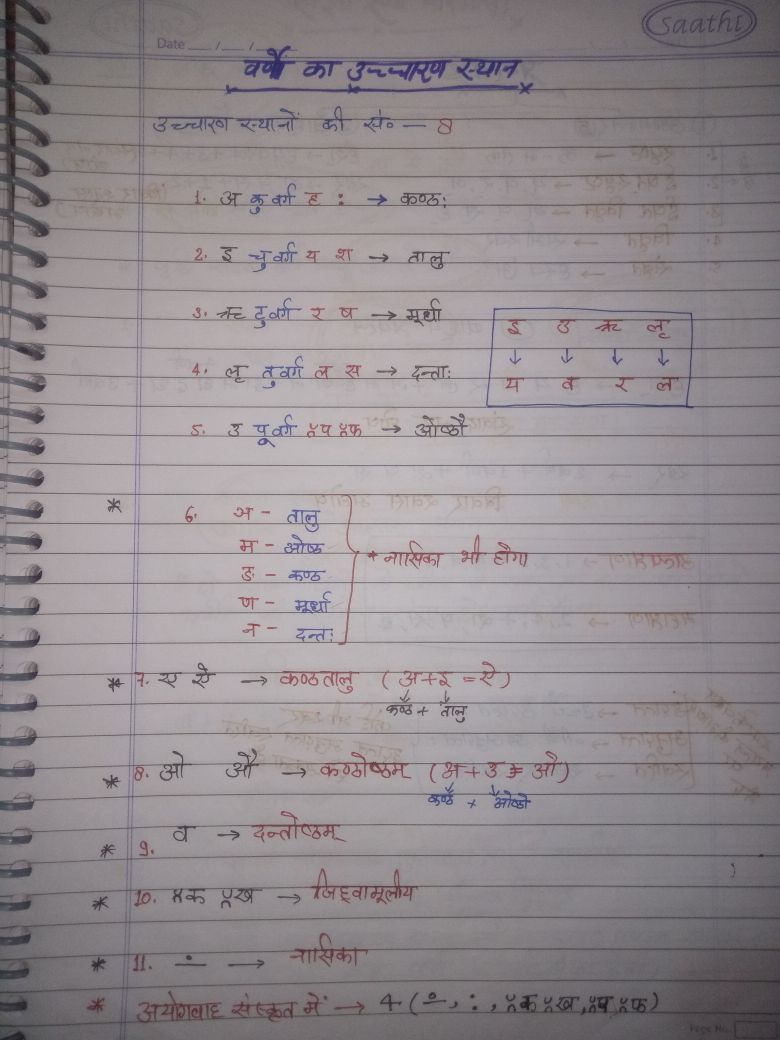 saathi
Date __/__/__
वर्णों का उच्चारण स्थान
उच्चारण स्थानों की सं० — 8
1. अ कु वर्ग ह : → कण्ठः
2. इ चु वर्ग य श → तालु
3. ऋ टु वर्ग र ष → मूर्धा
4. लृ तु वर्ग ल स → दन्ताः
इ उ ऋ लृ
↓ ↓ ↓ ↓
य व र ल
5. उ पू वर्ग ꣲप ꣲफ → ओष्ठौ
* 6. ञ - तालु
म - ओष्ठ
ङ - कण्ठ
ण - मूर्धा
न - दन्तः
* नासिका भी होगा
* 7. ए ऐ → कण्ठतालु (अ+इ = ऐ)
कण्ठ + तालु
* 8. ओ औ → कण्ठोष्ठम् (अ + उ = औ)
कण्ठ + ओष्ठो
* 9. व → दन्तोष्ठम्
* 10. ꣲक ꣲख → जिह्वामूलीय
* 11. ∸ → नासिका
* अयोगवाह संस्कृत में → 4 (∸, :, ꣲक ꣲख, ꣲप ꣲफ)
Page No.